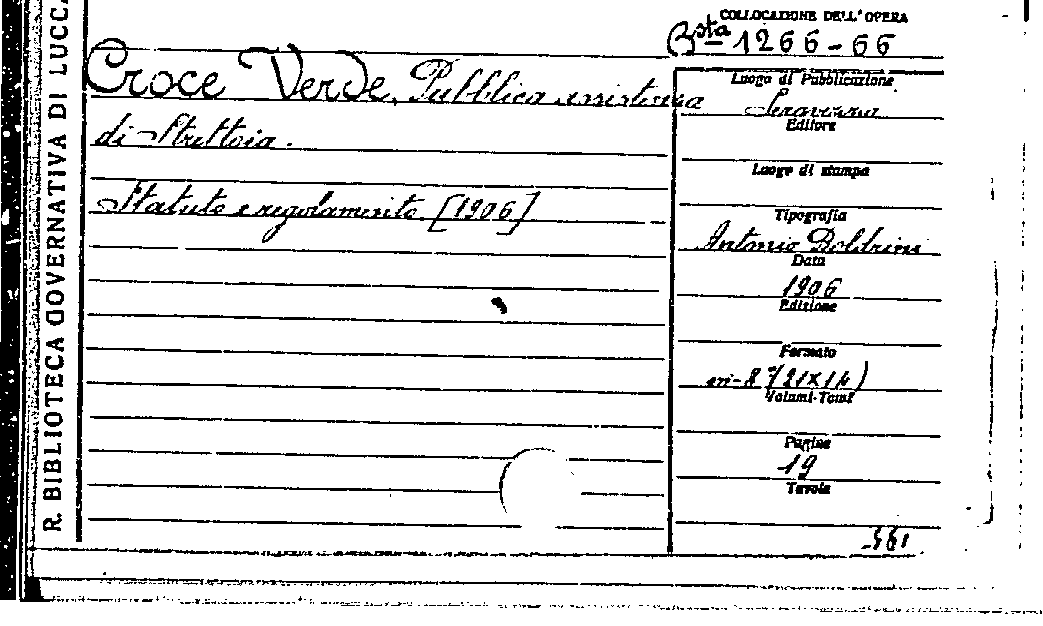 R. BIBLIOTECA GOVERNATIVA DI LUCCA
COLLOCAZIONE DELL'OPERA
Bsta 1266-66
Croce Verde. Pubblica assistenza
di Strettoia.
Statuto e regolamento [1906]
Luogo di Pubblicazione
Seravezza
Editore
Luogo di stampa
Tipografia
Antonio Boldrini
Data
1906
Edizione
Formato
in-8° (21x14)
Volumi-Tomi
Pagine
19
Tavole